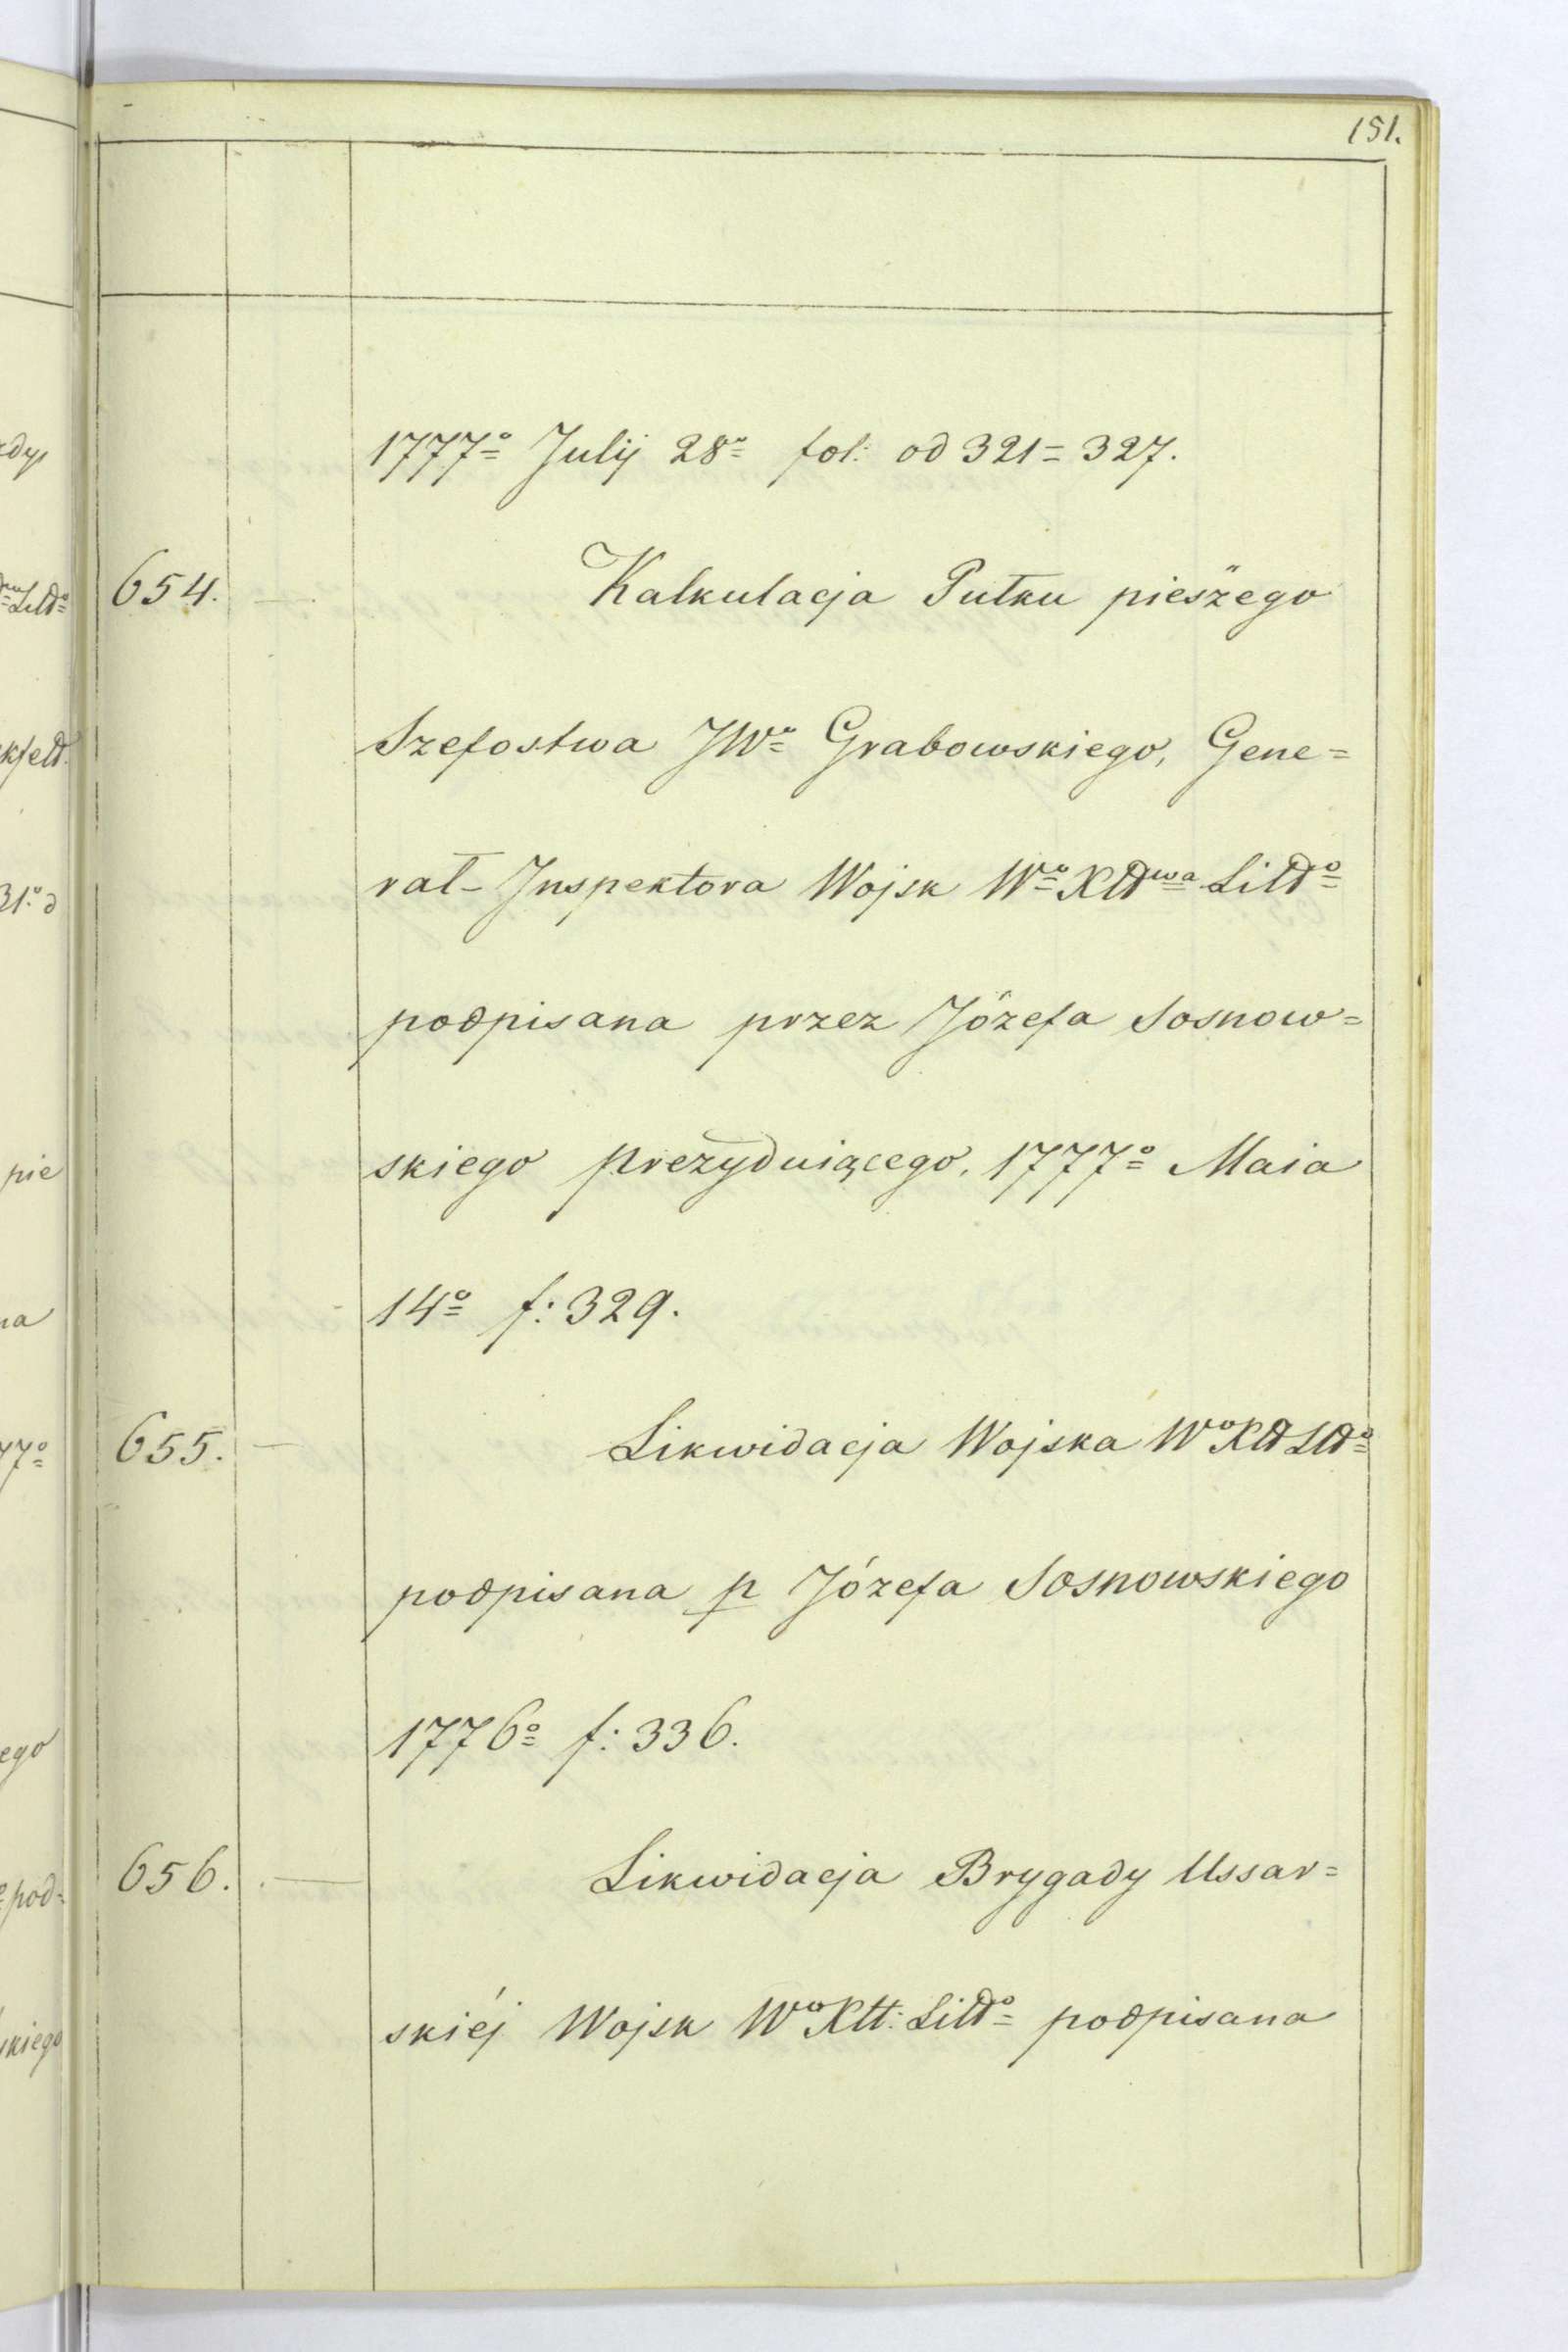 151.
1777o Julij 28o fol: od 321=327.
654. — Kalkulacja Pułku pieszego
Szefostwa JWo Grabowskiego, Gene=
rał-Jnspektora Wojsk Wo Xttwa Litto
podpisana przez Józefa Sosnow=
skiego prezyduiącego, 1777o Maia
14o f: 329.
655. — Likwidacja Wojska Wo Xtt Ltto
podpisana p Józefa Sosnowskiego
1776o f: 336.
656. — Likwidacja Brygady Ussar=
skiéj Wojsk Wo Xtt: Litto podpisana